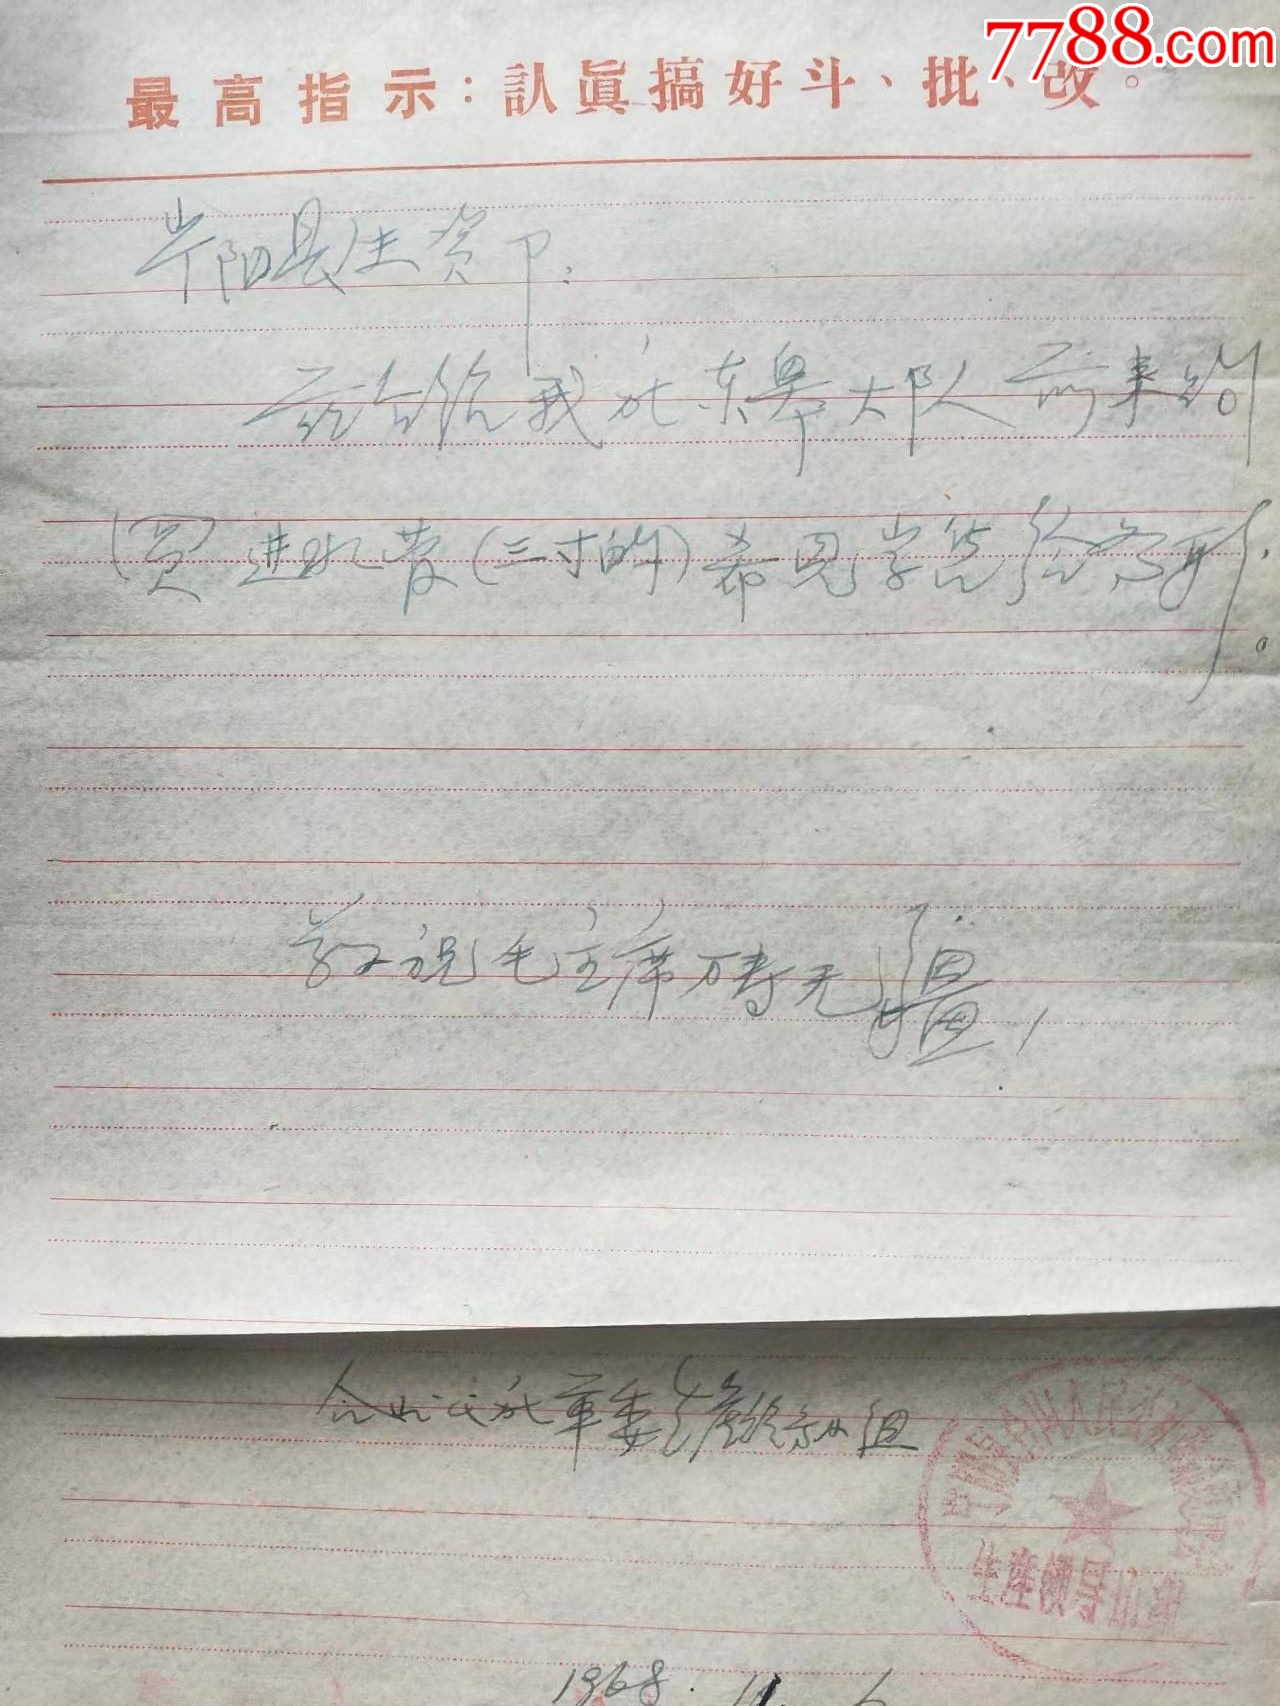 7788.com
最高指示：認眞搞好斗、批、改。
岸阳县生资卩：
兹介绍我社东皋大队人前来购
买进水管（三寸的）希見字货给为盼。
敬祝毛主席万寿无疆！
公社革委生产领导小组
生产领导小组
1968.11.6